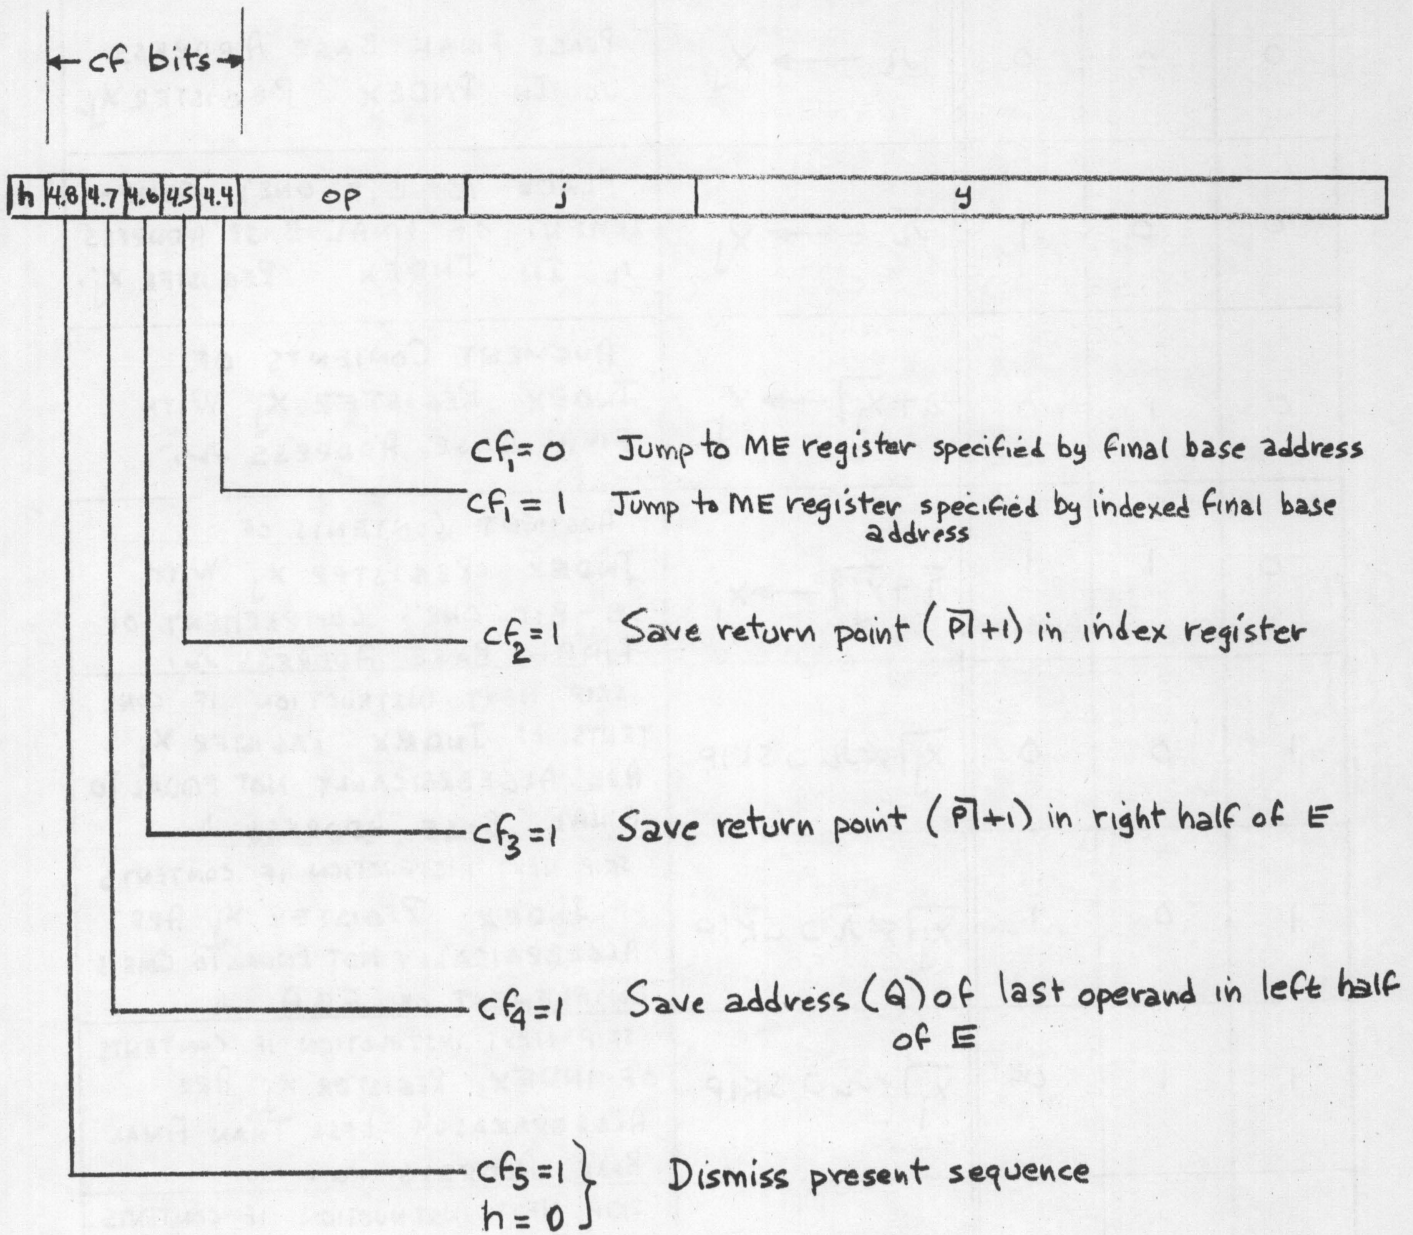 cf bits
h 4.8 4.7 4.6 4.5 4.4 op j y
cf₁ = 0 Jump to ME register specified by final base address
cf₁ = 1 Jump to ME register specified by indexed final base
address
cf₂ = 1 Save return point (P̅|+1) in index register
cf₃ = 1 Save return point (P̅|+1) in right half of E
cf₄ = 1 Save address (Q) of last operand in left half
of E
cf₅ = 1 } Dismiss present sequence
h = 0